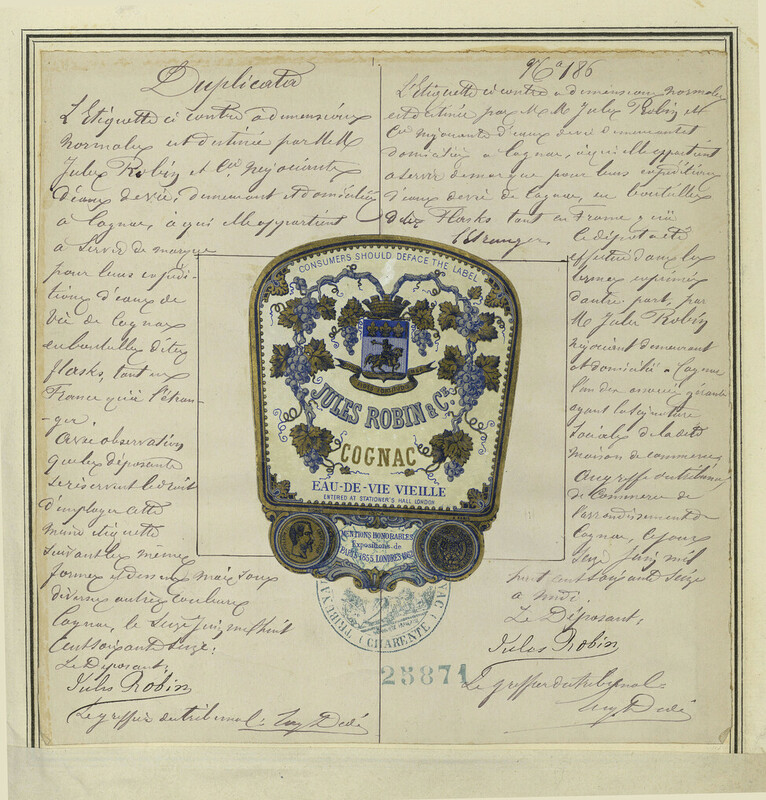 Duplicata
L'Etiquette ci contre a dimensions
normales est destinée par MM.
Jules Robin et Cie négociants
d'eaux de vie, demeurant et domiciliés
à Cognac, à qui elle appartient
à servir de marque
pour leurs expédi-
tions d'eaux de
vie de Cognac
en bouteilles dites
flasks, tant en
France qu'à l'étran-
ger.
Avec observation
que les déposants
se réservent le droit
d'employer cette
même étiquette
suivant les mêmes
formes et dessins mais sous
diverses autres couleurs
Cognac, le seize juin mil huit
cent soixante seize.
Le Déposant,
Jules Robin
Le greffier du tribunal:
No 186
L'Etiquette ci contre a dimensions normales
est destinée par MM. Jules Robin et
Cie négociants d'eaux de vie demeurant et
domiciliés à Cognac, à qui elle appartient
à servir de marque pour leurs expéditions
d'eaux de vie de Cognac, en bouteilles
dites Flasks tant en France qu'à
l'Etranger,
le dépôt a été
effectué dans les
termes exprimés
d'autre part, par
M. Jules Robin
négociant demeurant
et domicilié à Cognac
l'un des associés gérants
ayant la signature
sociale de la dite
maison de commerce
au greffe du tribunal
de Commerce de
l'arrondissement de
Cognac, le jour
seize juin mil
huit cent soixante seize
à midi
Le Déposant,
Jules Robin
Le greffier du tribunal:
CONSUMERS SHOULD DEFACE THE LABEL
JULES ROBIN & Cie
COGNAC
EAU-DE-VIE VIEILLE
ENTERED AT STATIONER'S HALL LONDON
MENTIONS HONORABLES
Expositions de
PARIS 1855, LONDRES 1862
(CHARENTE)
25871